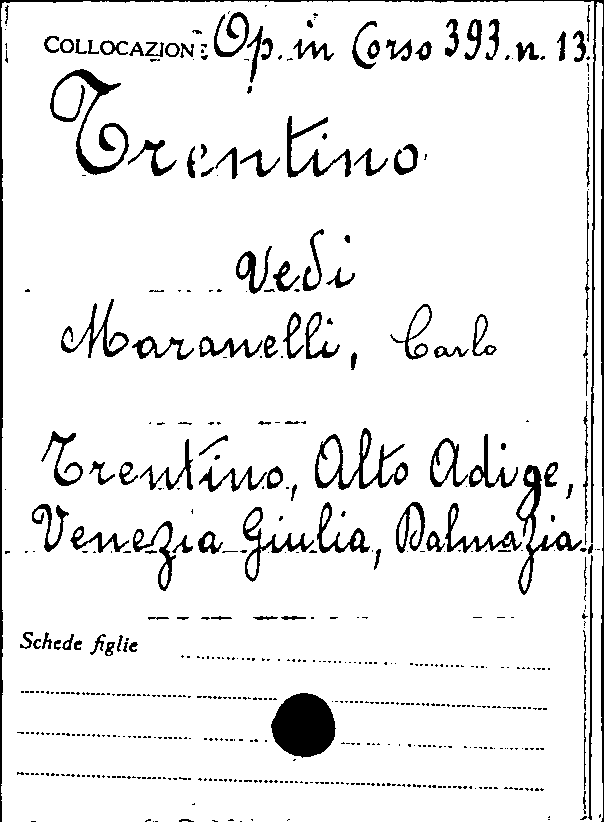 COLLOCAZIONE: Op. in Corso 393. n. 13
Trentino
Vedi
Maranelli, Carlo
Trentino, Alto Adige,
Venezia Giulia, Dalmazia.
Schede figlie